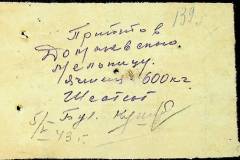 139
Принято в
Домневскую
мельницу.
Ячмень 600 кг.
Шестьсот
5/V 43 г. Бух.